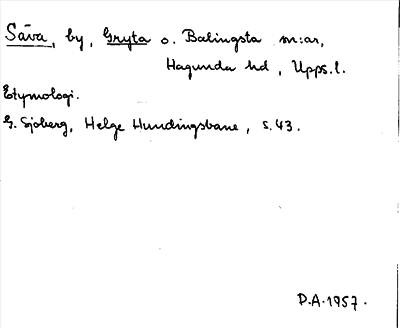 Säva, by, Gryta o. Balingsta sn:ar,
Hagunda hd, Upps.l.
Etymologi.
G. Sjöberg, Helge Hundingsbane, s. 43.
P.A. 1957.